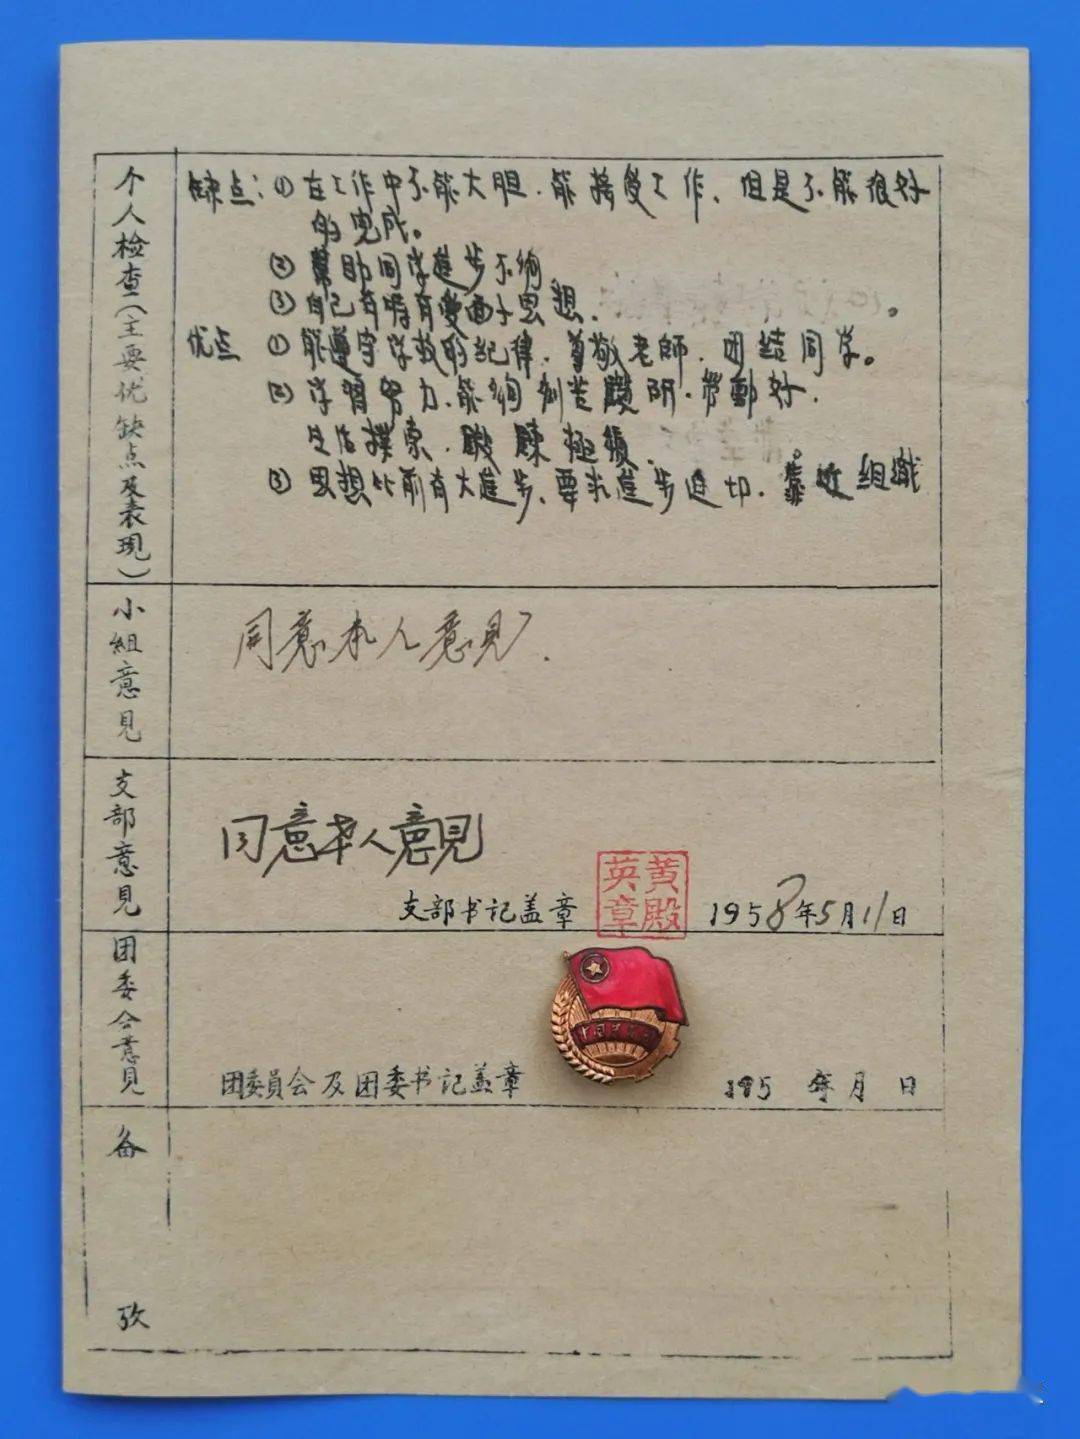 个人检查(主要优缺点及表现)
缺点:①在工作中不能大胆.能接受工作、但是不能很好
的完成。
②幫助同学進步不夠
③自己有時有愛面子思想.
优点 ①能遵守学校的纪律.尊敬老師.团结同学。
②学習努力.能夠刻苦鑽研.劳動好.
生活樸素.鍛鍊極積.
③思想比前有大進步、要求進步迫切.靠近組織
小組意見
同意本人意見.
支部意見
同意本人意見
支部书记盖章
黄殿英章
1958年5月11日
团委会意見
团委員会及团委书记盖章
195 年 月 日
备
攷